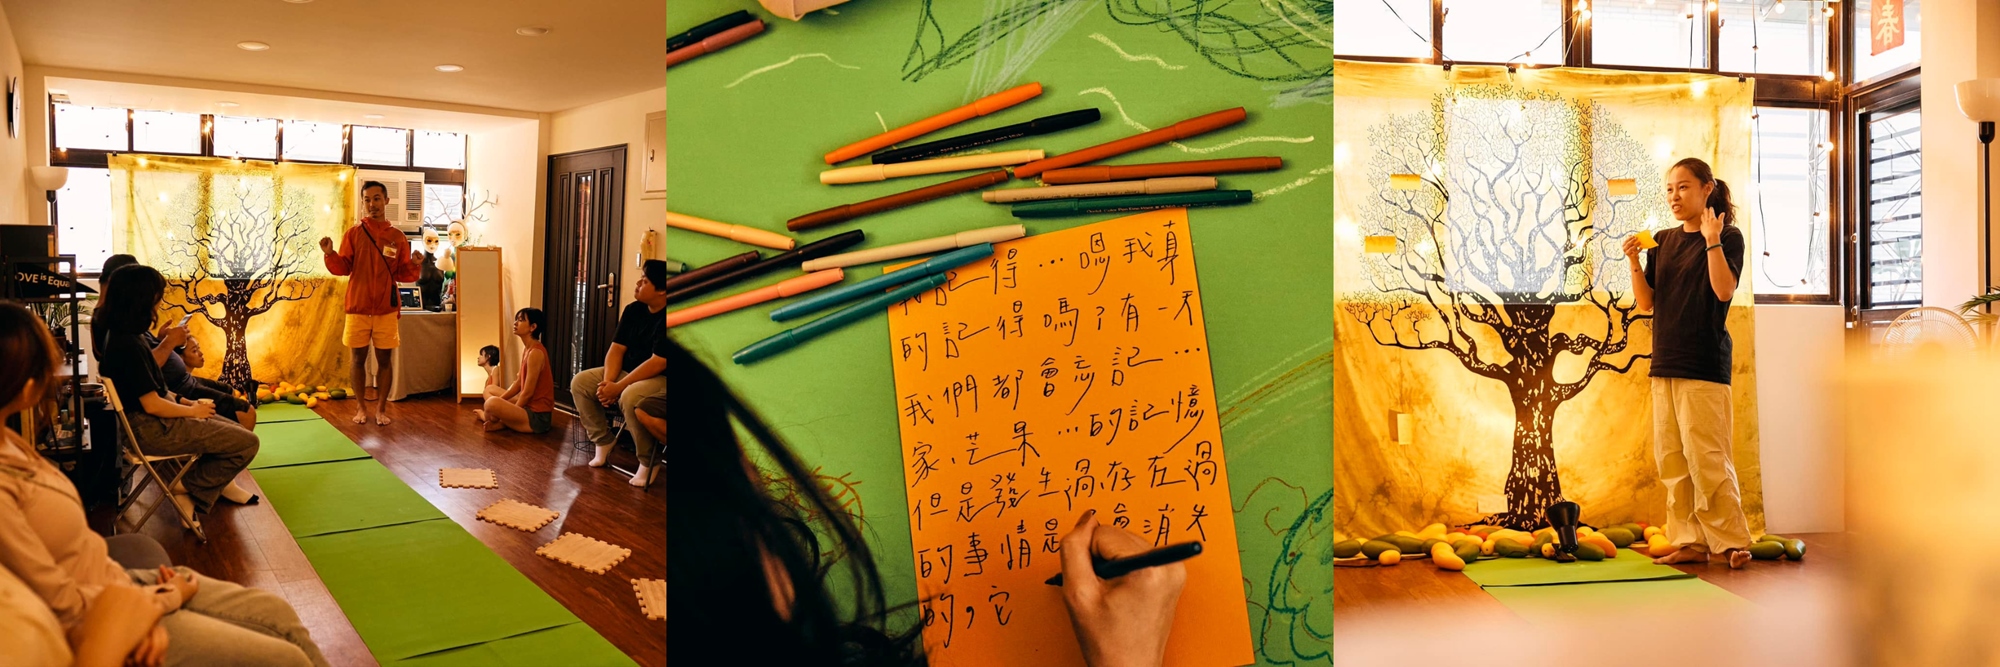 OVE is Equa
我記得…嗯我真
的記得嗎?有一天
我們都會忘記…
家、芒果…的記憶
但是發生過、存在過
的事情是會消失
的,它
春